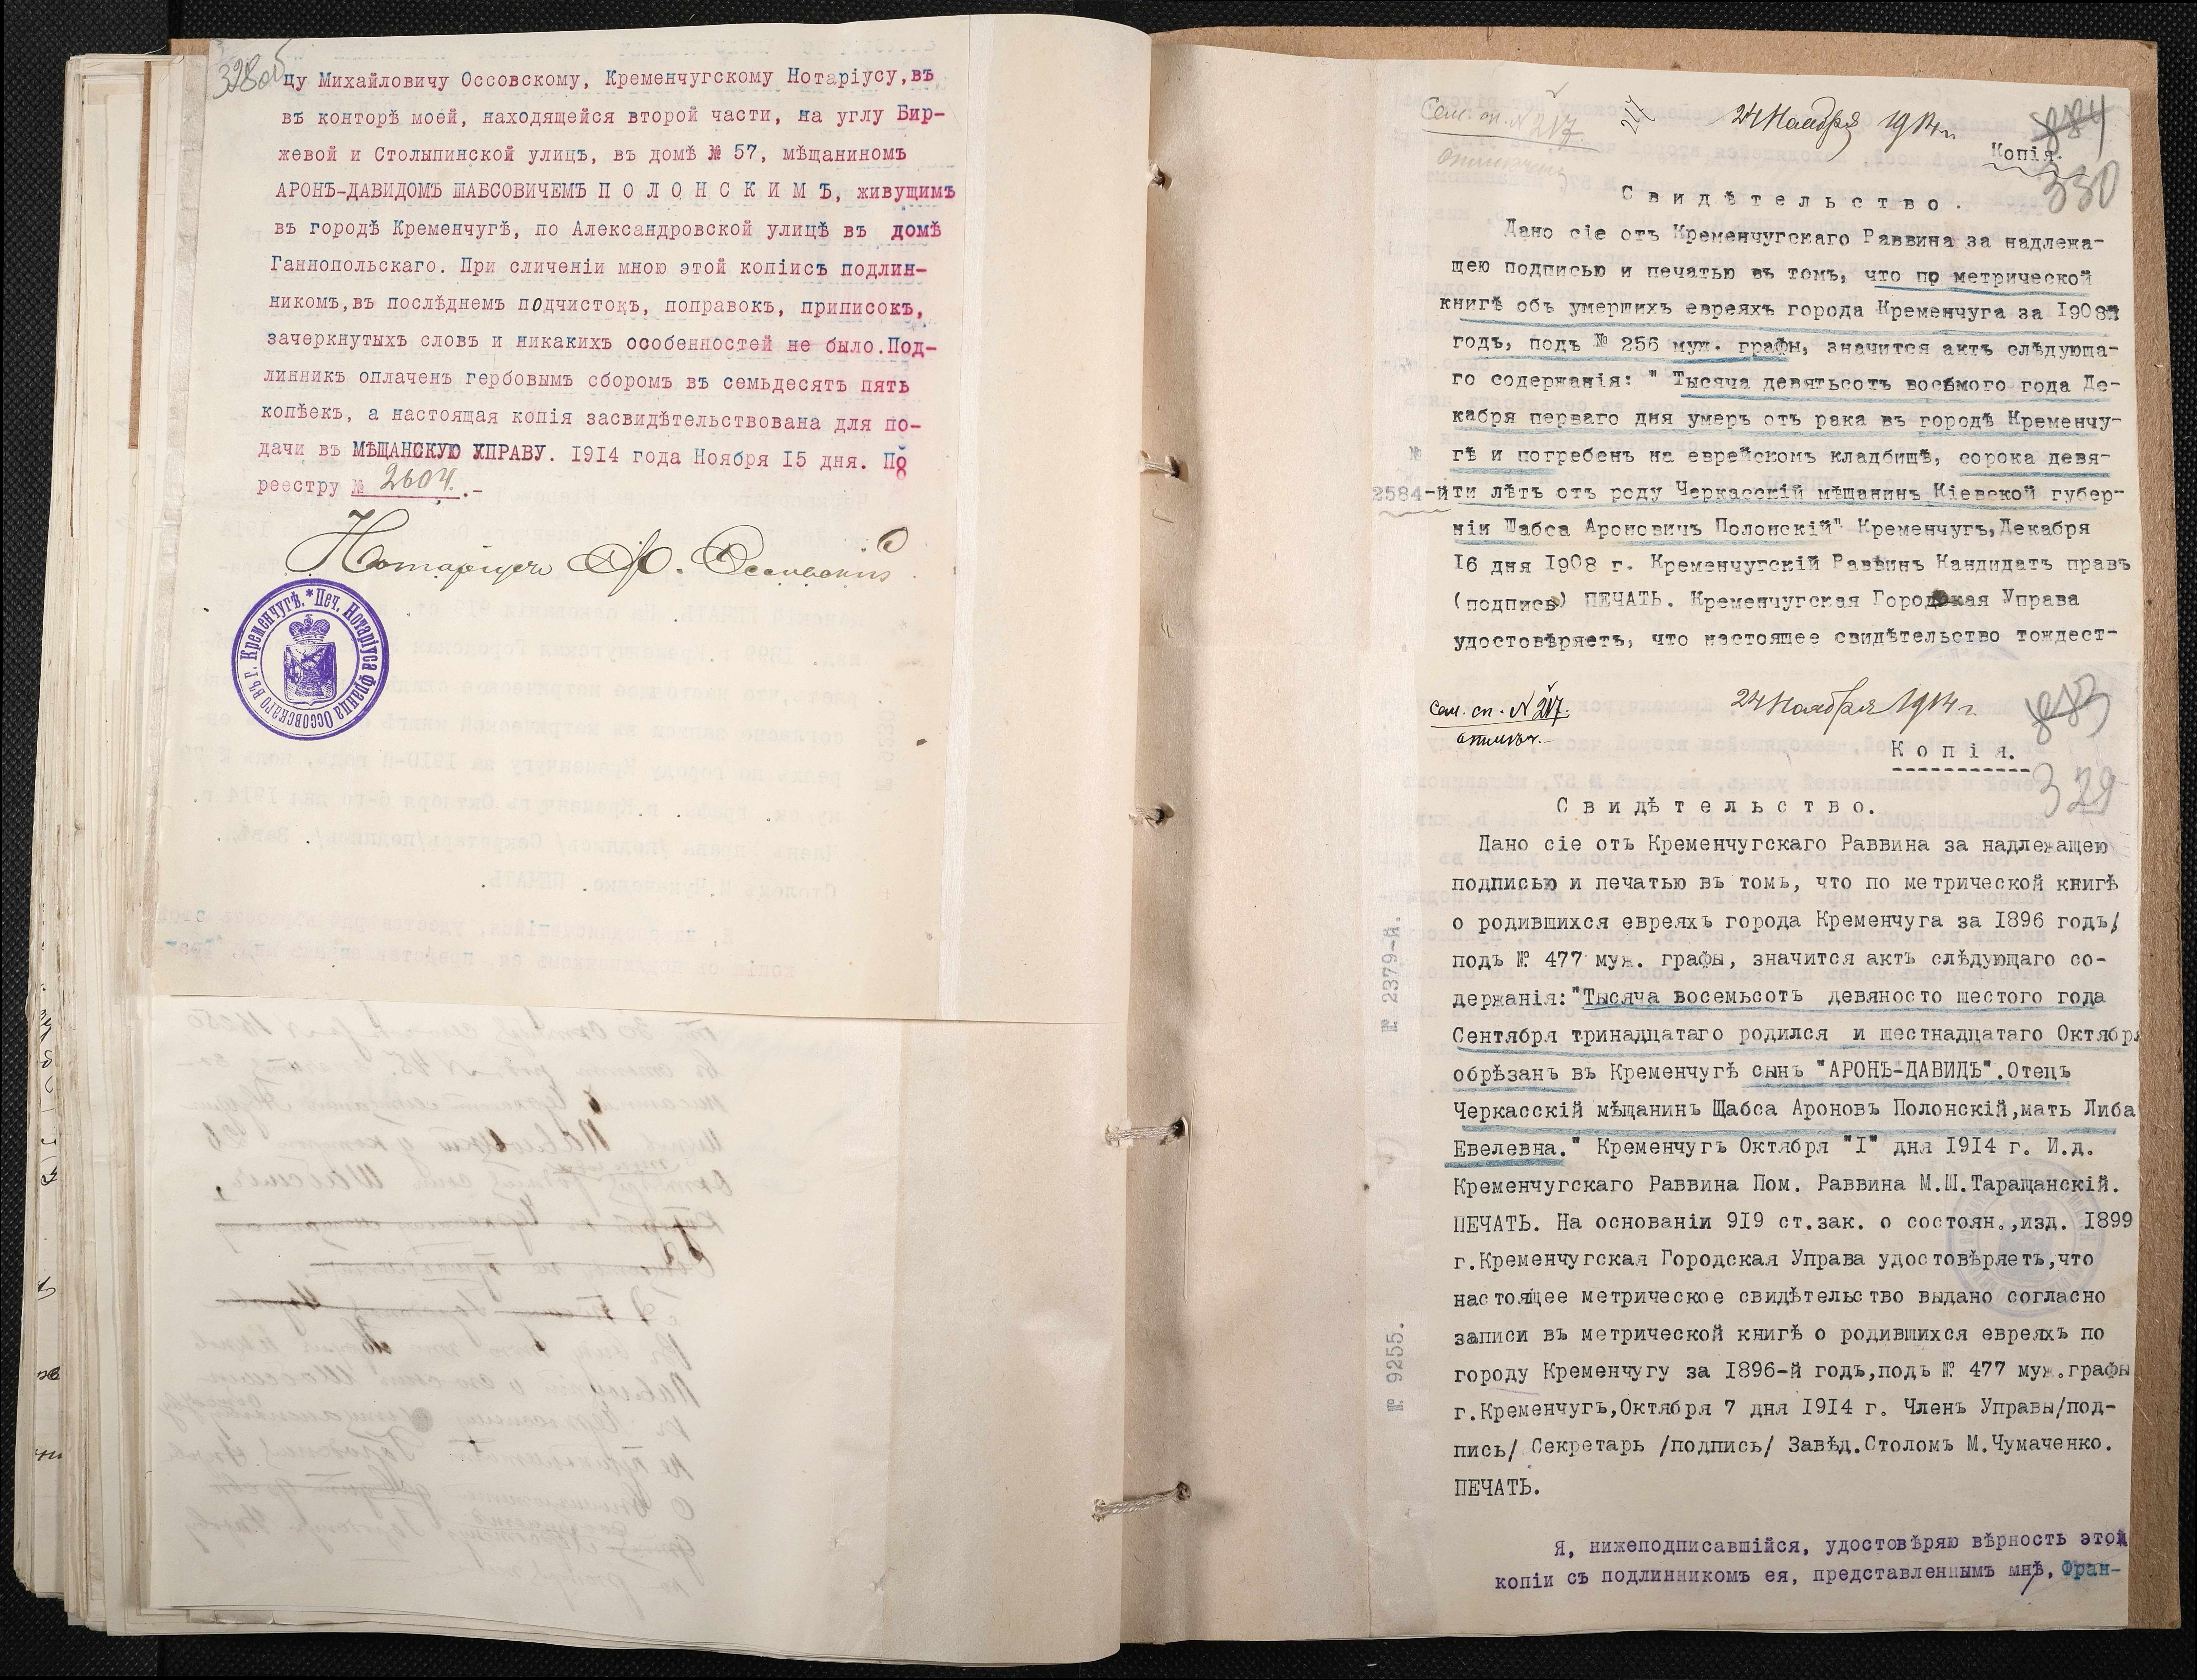 328об
цу Михайловичу Оссовскому, Кременчугскому Нотаріусу,въ
въ конторѣ моей, находящейся второй части, на углу Бир-
жевой и Столыпинской улицъ, въ домѣ № 57, мѣщаниномъ
АРОНЪ-ДАВИДОМЪ ШАБСОВИЧЕМЪ П О Л О Н С К И М Ъ, живущимъ
въ городѣ Кременчугѣ, по Александровской улицѣ въ домѣ
Ганнопольскаго. При сличеніи мною этой копіисъ подлин-
никомъ,въ послѣднемъ подчистокъ, поправокъ, приписокъ,
зачеркнутыхъ словъ и никакихъ особенностей не было.Под-
линникъ оплаченъ гербовымъ сборомъ въ семьдесятъ пять
копѣекъ, а настоящая копія засвидѣтельствована для по-
дачи въ МѢЩАНСКУЮ УПРАВУ. 1914 года Ноября 15 дня. По
реестру № 2604.-
Нотаріусъ Ф. Оссовскій
Печ. Нотаріуса Франца Оссовскаго въ г. Кременчугѣ.*
Сем. сп. № 217
24 Ноября 1914 г.
884
Копія.
330
С в и д ѣ т е л ь с т в о .
Дано сіе отъ Кременчугскаго Раввина за надлежа-
щею подписью и печатью въ томъ, что по метрической
книгѣ объ умершихъ евреяхъ города Кременчуга за 1908й
годъ, подъ № 256 муж. графы, значится актъ слѣдующа-
го содержанія: " Тысяча девятьсотъ восьмого года Де-
кабря перваго дня умеръ отъ рака въ городѣ Кременчу-
гѣ и погребенъ на еврейскомъ кладбищѣ, сорока девя-
№ 2584-й
ти лѣтъ отъ роду Черкасскій мѣщанинъ Кіевской губер-
ніи Шабса Ароновичъ Полонскій" Кременчугъ,Декабря
16 дня 1908 г. Кременчугскій Раввинъ Кандидатъ правъ
(подпись) ПЕЧАТЬ. Кременчугская Городская Управа
удостовѣряетъ, что настоящее свидѣтельство тождест-
Сем. сп. № 217.
24 Ноября 1914 г
883
К о п і я.
329
С в и д ѣ т е л ь с т в о.
Дано сіе отъ Кременчугскаго Раввина за надлежащею
подписью и печатью въ томъ, что по метрической книгѣ
о родившихся евреяхъ города Кременчуга за 1896 годъ/
подъ № 477 муж. графы, значится актъ слѣдующаго со-
держанія:"Тысяча восемьсотъ девяносто шестого года
Сентября тринадцатаго родился и шестнадцатаго Октября
обрѣзанъ въ Кременчугѣ сынъ "АРОНЪ-ДАВИДЪ".Отецъ
Черкасскій мѣщанинъ Щабса Ароновъ Полонскій,мать Либа
Евелевна." Кременчугъ Октября "1" дня 1914 г. И.д.
Кременчугскаго Раввина Пом. Раввина М.Ш.Таращанскій.
ПЕЧАТЬ. На основаніи 919 ст.зак. о состоян.,изд. 1899
г.Кременчугская Городская Управа удостовѣряетъ,что
настоящее метрическое свидѣтельство выдано согласно
записи въ метрической книгѣ о родившихся евреяхъ по
городу Кременчугу за 1896-й годъ,подъ № 477 муж.графы
г.Кременчугъ,Октября 7 дня 1914 г. Членъ Управы/под-
пись/ Секретарь /подпись/ Завѣд.Столомъ М.Чумаченко.
ПЕЧАТЬ.
№ 2379-й.
№ 9255.
Я, нижеподписавшійся, удостовѣряю вѣрность этой
копіи съ подлинникомъ ея, представленнымъ мнѣ, Фран-